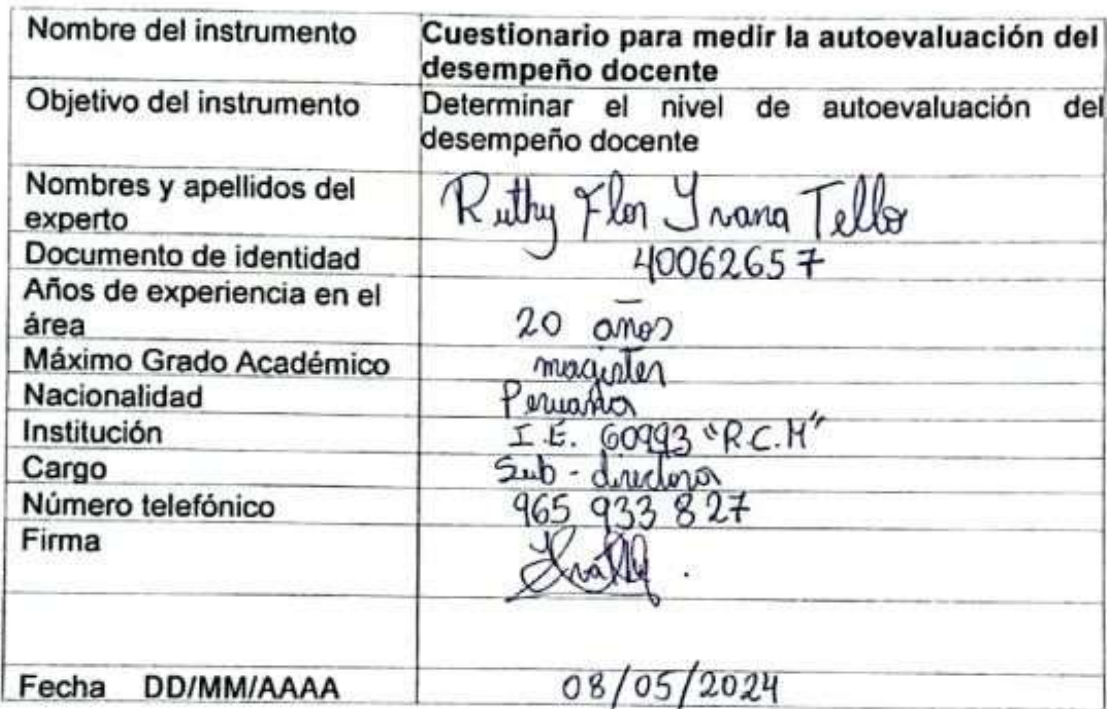 Nombre del instrumento
Cuestionario para medir la autoevaluación del
desempeño docente
Objetivo del instrumento
Determinar el nivel de autoevaluación del
desempeño docente
Nombres y apellidos del
experto
Ruthy Flor Yvana Tello
Documento de identidad
40062657
Años de experiencia en el
área
20 años
Máximo Grado Académico
magister
Nacionalidad
Peruana
Institución
I.E. 60993 "R.C.M"
Cargo
Sub-directora
Número telefónico
965 933 827
Firma
Fecha DD/MM/AAAA
08/05/2024